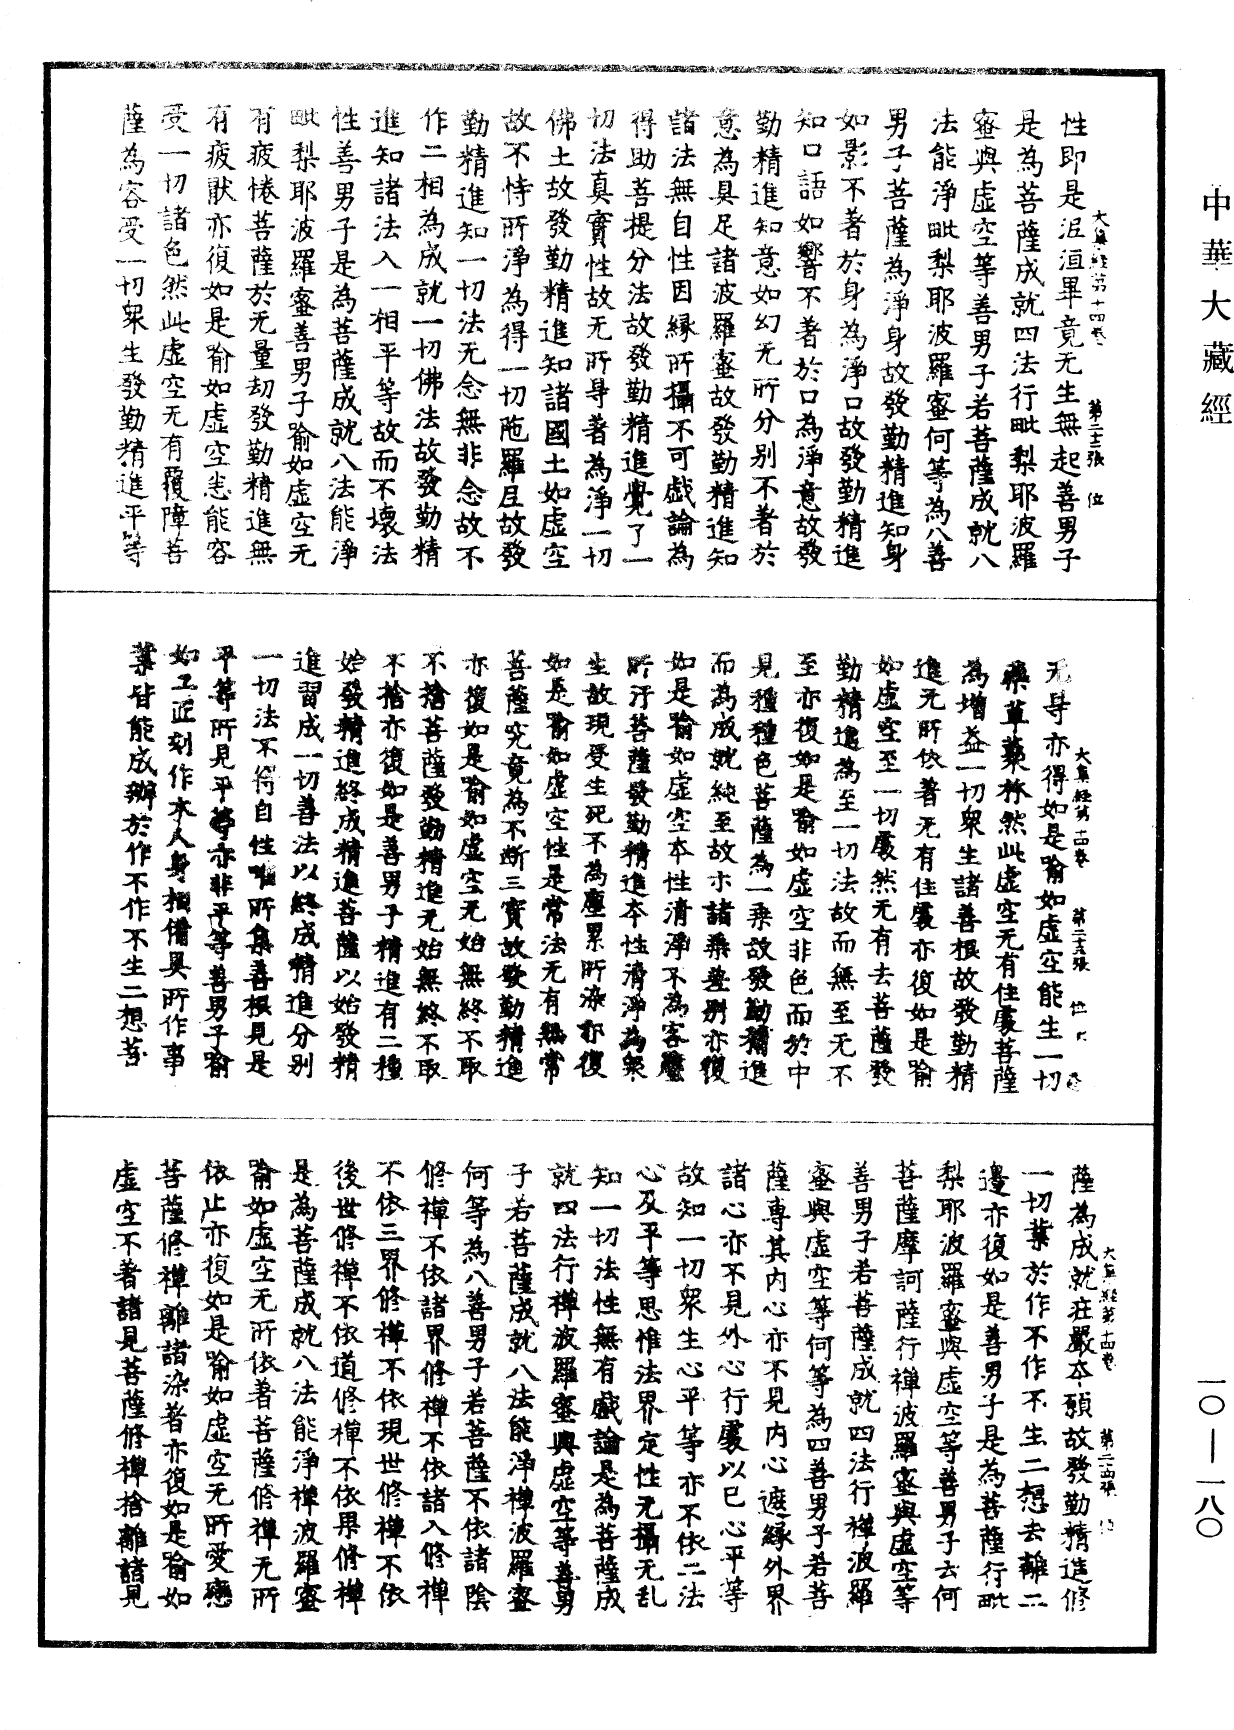 中華大藏經
大集經第十四卷 第二十三張 位
性即是泥洹畢竟无生無起善男子
是為菩薩成就四法行毗梨耶波羅
蜜與虛空等善男子若菩薩成就八
法能淨毗梨耶波羅蜜何等為八善
男子菩薩為淨身故發勤精進知身
如影不著於身為淨口故發勤精進
知口語如響不著於口為淨意故發
勤精進知意如幻无所分別不著於
意為具足諸波羅蜜故發勤精進知
諸法無自性因緣所攝不可戲論為
得助菩提分法故發勤精進覺了一
切法真實性故无所㝵著為淨一切
佛土故發勤精進知諸國土如虛空
故不恃所淨為得一切陁羅尼故發
勤精進知一切法无念無非念故不
作二相為成就一切佛法故發勤精
進知諸法入一相平等故而不壞法
性善男子是為菩薩成就八法能淨
毗梨耶波羅蜜善男子喻如虛空无
有疲惓菩薩於无量劫發勤精進無
有疲猒亦復如是喻如虛空悉能容
受一切諸色然此虛空无有覆障菩
薩為容受一切眾生發勤精進平等
无㝵亦得如是喻如虛空能生一切
藥草藂林然此虛空无有住處菩薩
為增益一切眾生諸善根故發勤精
進无所依著无有住處亦復如是喻
如虛空至一切處然无有去菩薩發
勤精進為至一切法故而無至无不
至亦復如是喻如虛空非色而於中
見種種色菩薩為一乘故發勤精進
而為成就純至故示諸乘差別亦復
如是喻如虛空本性清淨不為客塵
所汙菩薩發勤精進本性清淨為眾
生故現受生死不為塵累所染亦復
如是喻如虛空性是常法无有無常
菩薩究竟為不斷三寶故發勤精進
亦復如是喻如虛空无始無終不取
不捨菩薩發勤精進无始無終不取
不捨亦復如是善男子精進有二種
始發精進終成精進菩薩以始發精
進習成一切善法以終成精進分別
一切法不得自性唯所集善根見是
平等所見平等亦非平等善男子喻
如工匠刻作木人身相備具所作事
業皆能成辦於作不作不生二想菩
大集經第十四卷 第二十五張 位
薩為成就莊嚴本願故發勤精進修
一切業於作不作不生二想去離二
邊亦復如是善男子是為菩薩行毗
梨耶波羅蜜與虛空等善男子云何
菩薩摩訶薩行禪波羅蜜與虛空等
善男子若菩薩成就四法行禪波羅
蜜與虛空等何等為四善男子若菩
薩專其內心亦不見內心遮緣外界
諸心亦不見外心行處以己心平等
故知一切眾生心平等亦不依二法
心及平等思惟法界定性无攝无乱
知一切法性無有戲論是為菩薩成
就四法行禪波羅蜜與虛空等善男
子若菩薩成就八法能淨禪波羅蜜
何等為八善男子若菩薩不依諸陰
修禪不依諸界修禪不依諸入修禪
不依三界修禪不依現世修禪不依
後世修禪不依道修禪不依果修禪
是為菩薩成就八法能淨禪波羅蜜
喻如虛空无所依著菩薩修禪无所
依止亦復如是喻如虛空无所愛戀
菩薩修禪離諸染著亦復如是喻如
虛空不著諸見菩薩修禪捨離諸見
大集經第十四卷 第二十四張 位
一〇—一八〇